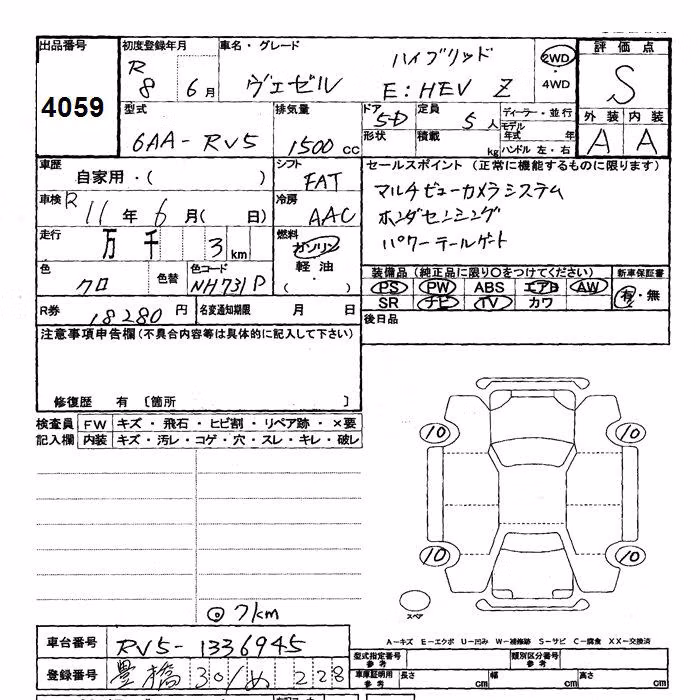 出品番号 初度登録年月 車名・グレード 評価点
4059 R8 6月 ヴェゼル ハイブリッド E:HEV Z 2WD・4WD S
外装 内装
A A
型式 排気量 ドア 定員 ディーラー・並行
6AA-RV5 1500cc 5D 5人 モデル年式 年
形状 積載 kg ハンドル 左・右
車歴 シフト セールスポイント(正常に機能するものに限ります)
自家用・( ) FAT マルチビューカメラシステム
車検 冷房 ホンダセンシング
R11年6月( 日) AAC パワーテールゲート
走行 燃料
万 千 3km ガソリン 軽油・( )
色 色替 色コード 装備品(純正品に限り〇をつけてください) 新車保証書
クロ NH731P PS PW ABS エアB AW 有・無
SR ナビ TV カワ
R券 18280円 名変通知期限 月 日 後日品
注意事項申告欄(不具合内容等は具体的に記入して下さい)
修復歴 有〔箇所 〕
検査員 FW キズ・飛石・ヒビ割・リペア跡・×要
記入欄 内装 キズ・汚レ・コゲ・穴・スレ・キレ・破レ
10 10
10 10
スペア
◎7km
車台番号 RV5-1336945
A-キズ E-エクボ U-凹み W-補修跡 S-サビ C-腐食 XX-交換済
型式指定番号 参考 類別区分番号 参考
登録番号 豊橋 301 め 228
車庫証明用 参考 長さ cm 幅 cm 高さ cm